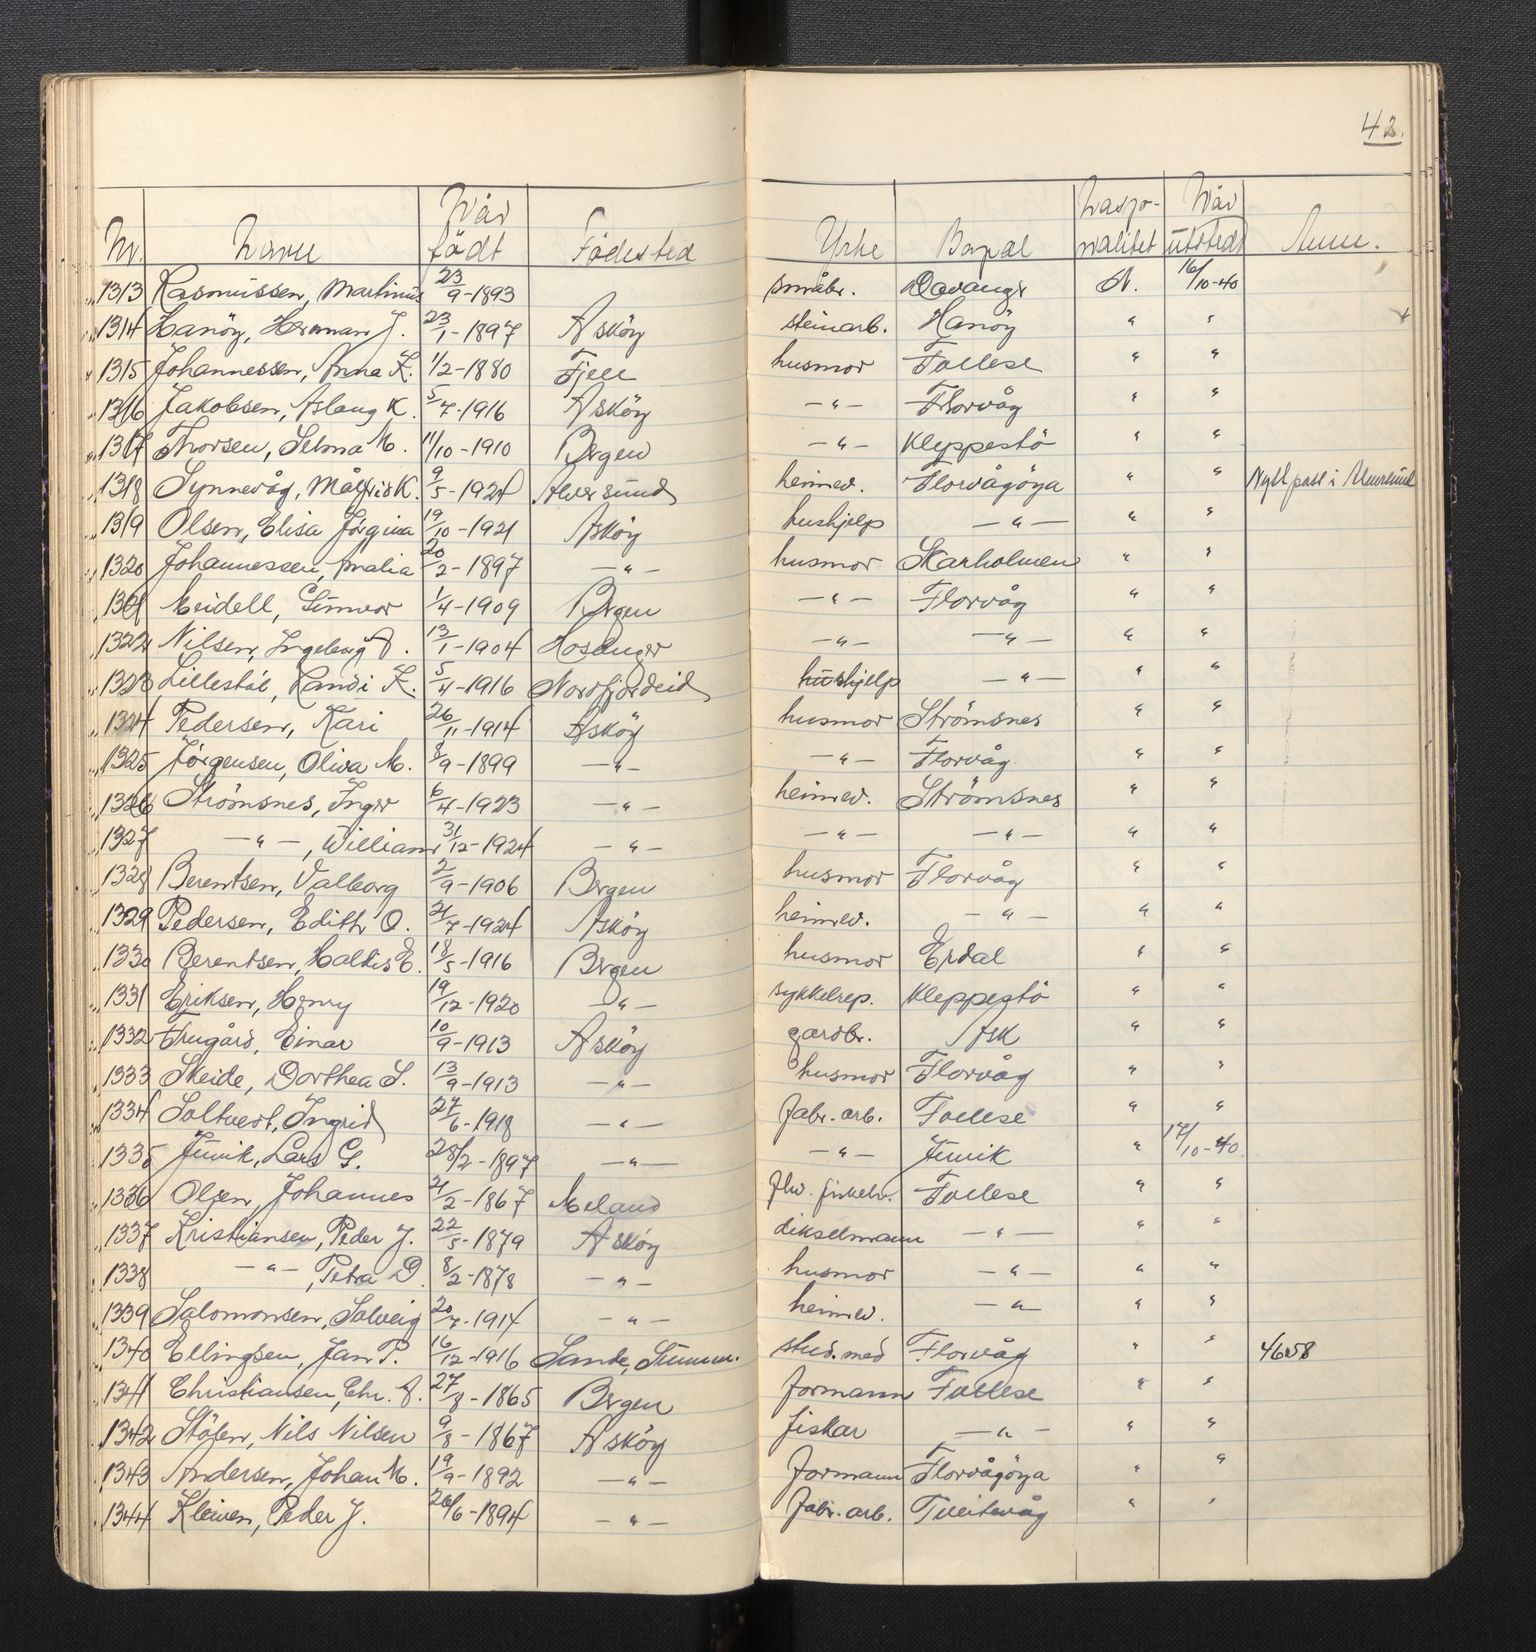 42.
Nr. Navn Når født Fødested Yrke Bopæl Nasjonalitet Når utstedt Anm.
1313 Rasmussen, Martinus 23/9-1893 småbr. Davanger N. 16/10-40
1314 Hanöy, Herman J. 23/1-1897 Asköy steinarb. Hanöy " "
1315 Johannessen, Anna K. 1/2-1880 Fjell husmor Follese " "
1316 Jakobsen, Aslaug K. 5/7-1916 Asköy -"- Florvåg " "
1317 Thorsen, Selma M. 11/10-1910 Bergen -"- Kleppestö " "
1318 Synnevåg, Målfrid K. 9/5-1924 Alversund heimev. Florvågöya " " Nytt pass i
1319 Olsen, Elisa Jörgina 19/10-1921 Asköy hushjelp -"- " "
1320 Johannessen, Amalia 20/2-1897 -"- husmor Skarholmen " "
1321 Meidell, Gunvor 1/4-1909 Bergen -"- Florvåg " "
1322 Nilsen, Ingeborg A. 13/1-1904 Hosanger -"- -"- " "
1323 Lillestöl, Randi K. 5/4-1916 Nordfjordeid hushjelp -"- " "
1324 Pedersen, Kari 26/11-1914 Asköy husmor Strömsnes " "
1325 Jörgensen, Oliva M. 8/9-1899 -"- -"- Florvåg " "
1326 Strömsnes, Inger 6/4-1923 -"- heimev. Strömsnes " "
1327 -"-, William 31/12-1924 -"- -"- -"- " "
1328 Berentsen, Valborg 2/9-1906 Bergen husmor Florvåg " "
1329 Pedersen, Edith O. 21/7-1924 Asköy heimev. -"- " "
1330 Berentsen, Haldis E. 18/5-1916 Bergen husmor Erdal " "
1331 Eriksen, Henry 19/12-1920 -"- sykkelrep. Kleppestö " "
1332 Trugård, Einar 10/9-1913 Asköy gardbr. Ask " "
1333 Skeide, Dorthea S. 13/9-1913 -"- husmor Florvåg " "
1334 Soltvert, Ingrid 27/6-1918 -"- fabr.arb. Follese " "
1335 Juvik, Lars G. 28/2-1897 -"- -"- Juvik " 17/10-40
1336 Olsen, Johannes 21/2-1867 Meland fhv. fiskehr. Follese " "
1337 Kristiansen, Peder J. 22/5-1879 Asköy dikselmann -"- " "
1338 -"-, Petra D. 8/2-1878 -"- husmor -"- " "
1339 Salomonsen, Solveig 20/7-1914 -"- heimev. -"- " "
1340 Ellingsen, Jan P. 16/12-1916 Sande, Sunnm. stud. med Florvåg " " 46058
1341 Christiansen, Chr. A. 27/8-1865 Bergen formann Follese " "
1342 Stölen, Nils Nilsen 9/8-1867 Asköy fiskar -"- " "
1343 Andersen, Johan M. 19/9-1892 -"- formann Florvågöya " "
1344 Kleiven, Peder J. 26/6-1894 -"- fabr.arb. Tveitevåg " "